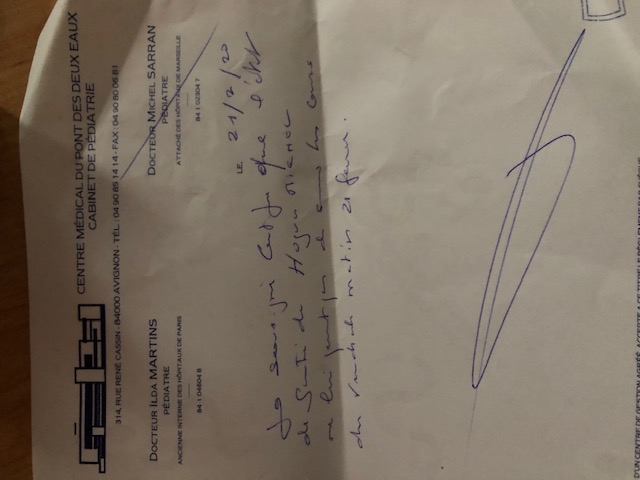 CENTRE MÉDICAL DU PONT DES DEUX EAUX
CABINET DE PÉDIATRIE
314, RUE RENÉ CASSIN - 84000 AVIGNON - TÉL : 04 90 85 14 14 - FAX : 04 90 80 06 81
DOCTEUR ILDA MARTINS
PÉDIATRE
ANCIENNE INTERNE DES HÔPITAUX DE PARIS
84 1 04604 8
DOCTEUR MICHEL SARRAN
PÉDIATRE
ATTACHÉ DES HÔPITAUX DE MARSEILLE
84 1 02304 7
LE, 21/2/20
Je soussigné Certifie que l'état
de Santé de Hugo
ne lui permet pas de suivre les cours
du Vendredi matin 21 février.
D'UN CENTRE DE GESTION AGRÉÉ, ACCEPTE A CE TITRE LE RÈGLEMENT PAR CHÈQUE